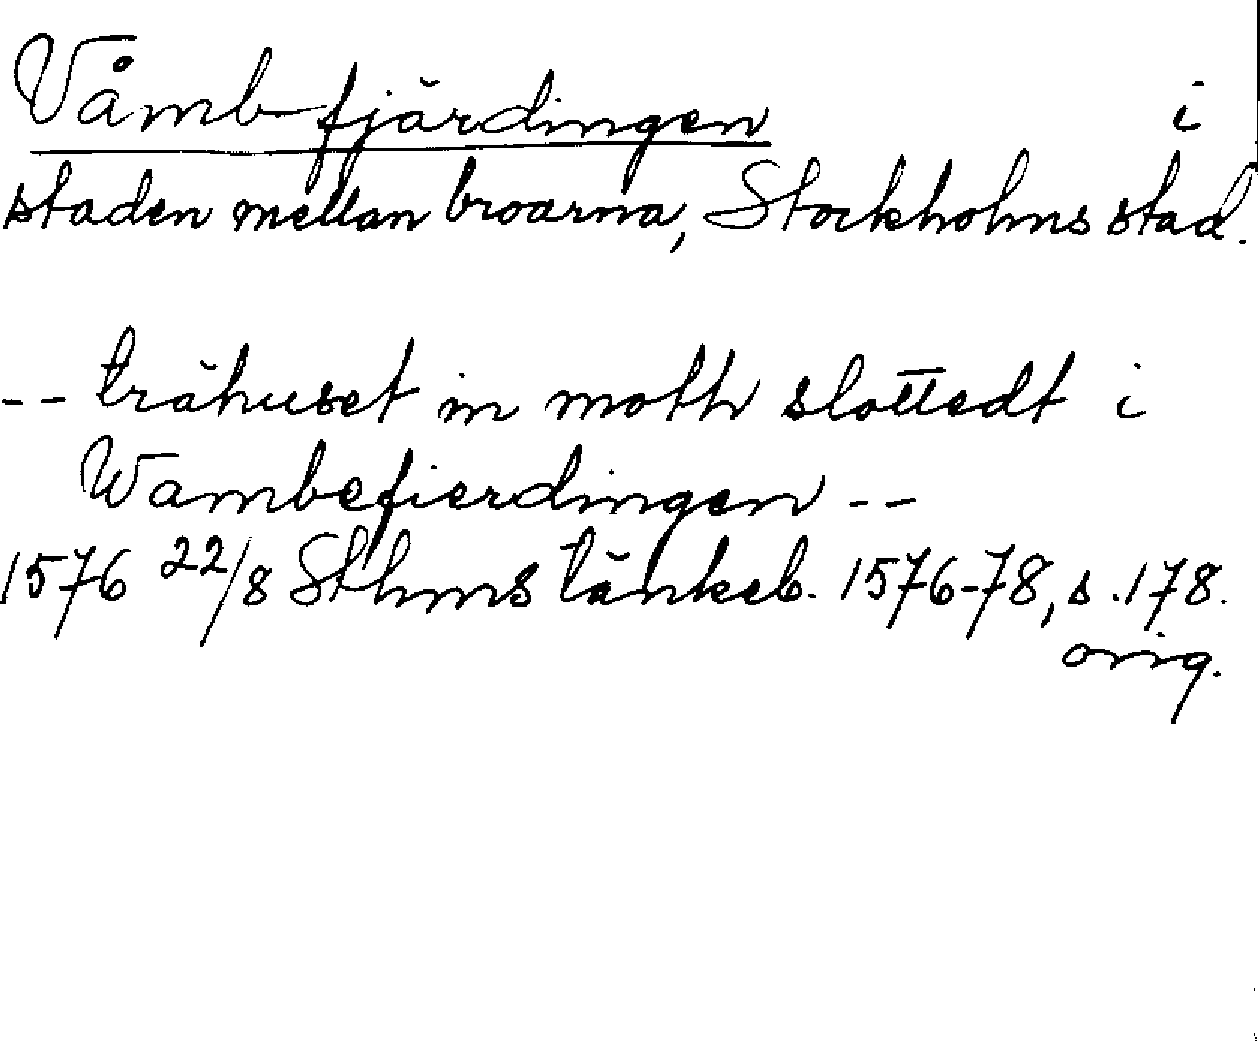 Våmbfjärdingen i
staden mellan broarna, Stockholms stad.
-- trähuset in moth slottedt i
Wambefierdingen --
1576 22/8 Sthms tänkeb. 1576-78, s. 178.
orig.